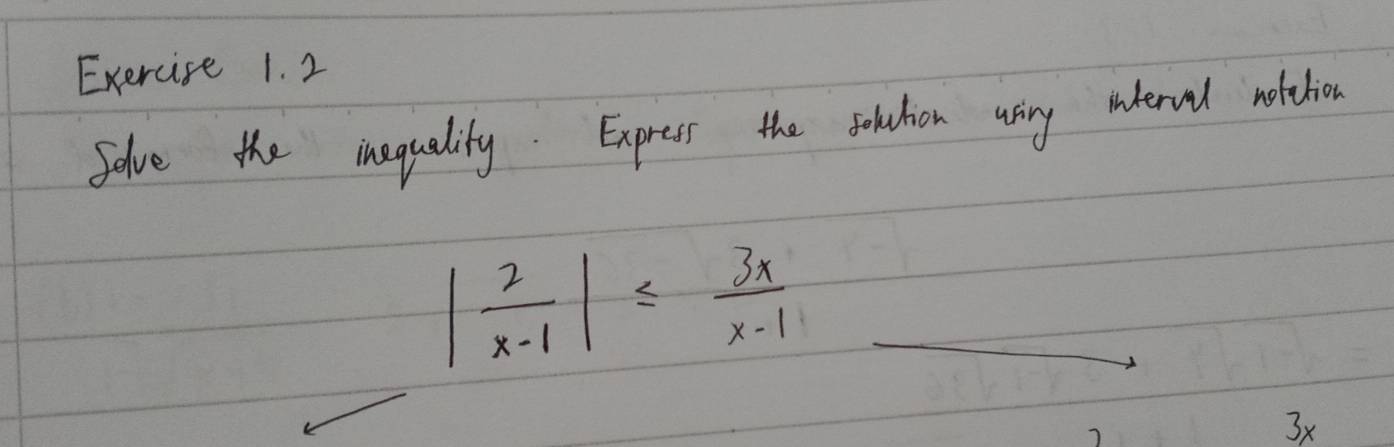 Exercise 1.2
Solve the inequality. Express the solution using interval notation
| 2/(x-1) | ≤ 3x/(x-1)
3x